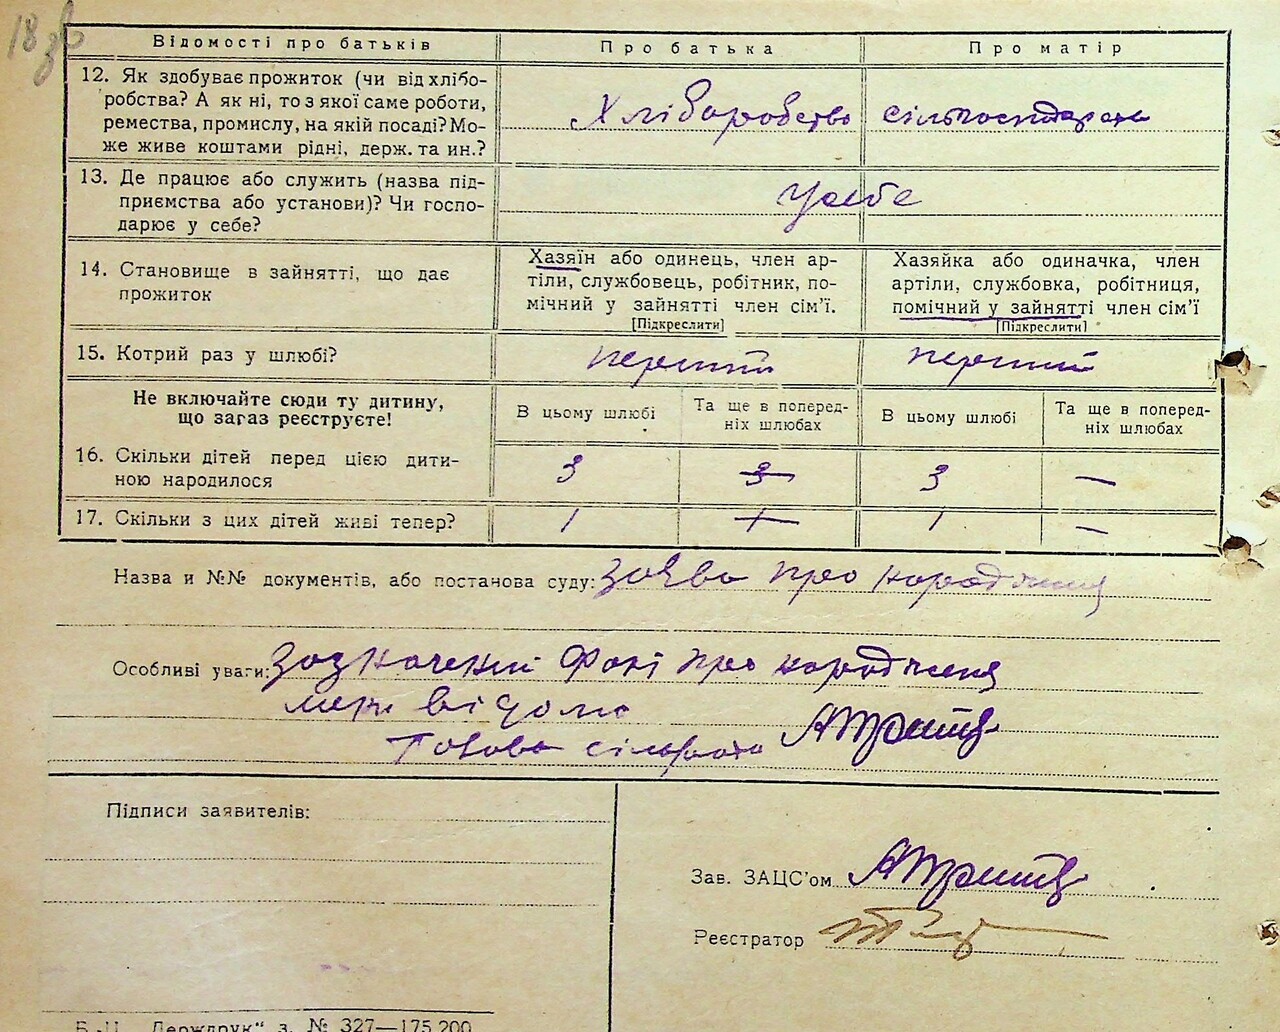 18зв
Відомості про батьків
Про батька
Про матір
12. Як здобуває прожиток (чи від хлібо-
робства? А як ні, то з якої саме роботи,
ремества, промислу, на якій посаді? Мо-
же живе коштами рідні, держ. та ин.?
Хліборобство
13. Де працює або служить (назва під-
приємства або установи)? Чи госпо-
дарює у себе?
Усебе
14. Становище в зайнятті, що дає
прожиток
Хазяїн або одинець, член ар-
тіли, службовець, робітник, по-
мічний у зайнятті член сім’ї.
[Підкреслити]
Хазяйка або одиначка, член
артіли, службовка, робітниця,
помічний у зайнятті член сім’ї
[Підкреслити]
15. Котрий раз у шлюбі?
перший
перший
Не включайте сюди ту дитину,
що загаз реєструєте!
В цьому шлюбі
Та ще в поперед-
ніх шлюбах
В цьому шлюбі
Та ще в поперед-
ніх шлюбах
16. Скільки дітей перед цією дити-
ною народилося
3
3
3
—
17. Скільки з цих дітей живі тепер?
1
1
1
—
Назва и №№ документів, або постанова суду: Заява про народження
Особливі уваги: Зазначений факт про народження
мені відомо
Голова сільради
Підписи заявителів:
Зав. ЗАЦС’ом
Реєстратор
Держдрук“ з. № 327—175.200